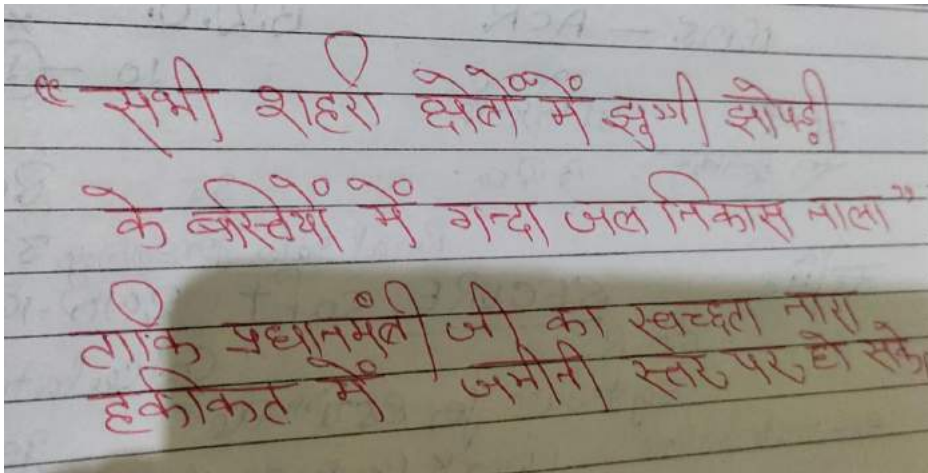 “ सभी शहरी क्षेत्रों में झुग्गी झोपड़ी
के बस्तियों में गन्दा जल निकास नाला ”
ताकि प्रधानमंत्री जी का स्वच्छता नारा
हकीकत में जमीनी स्तर पर हो सके।